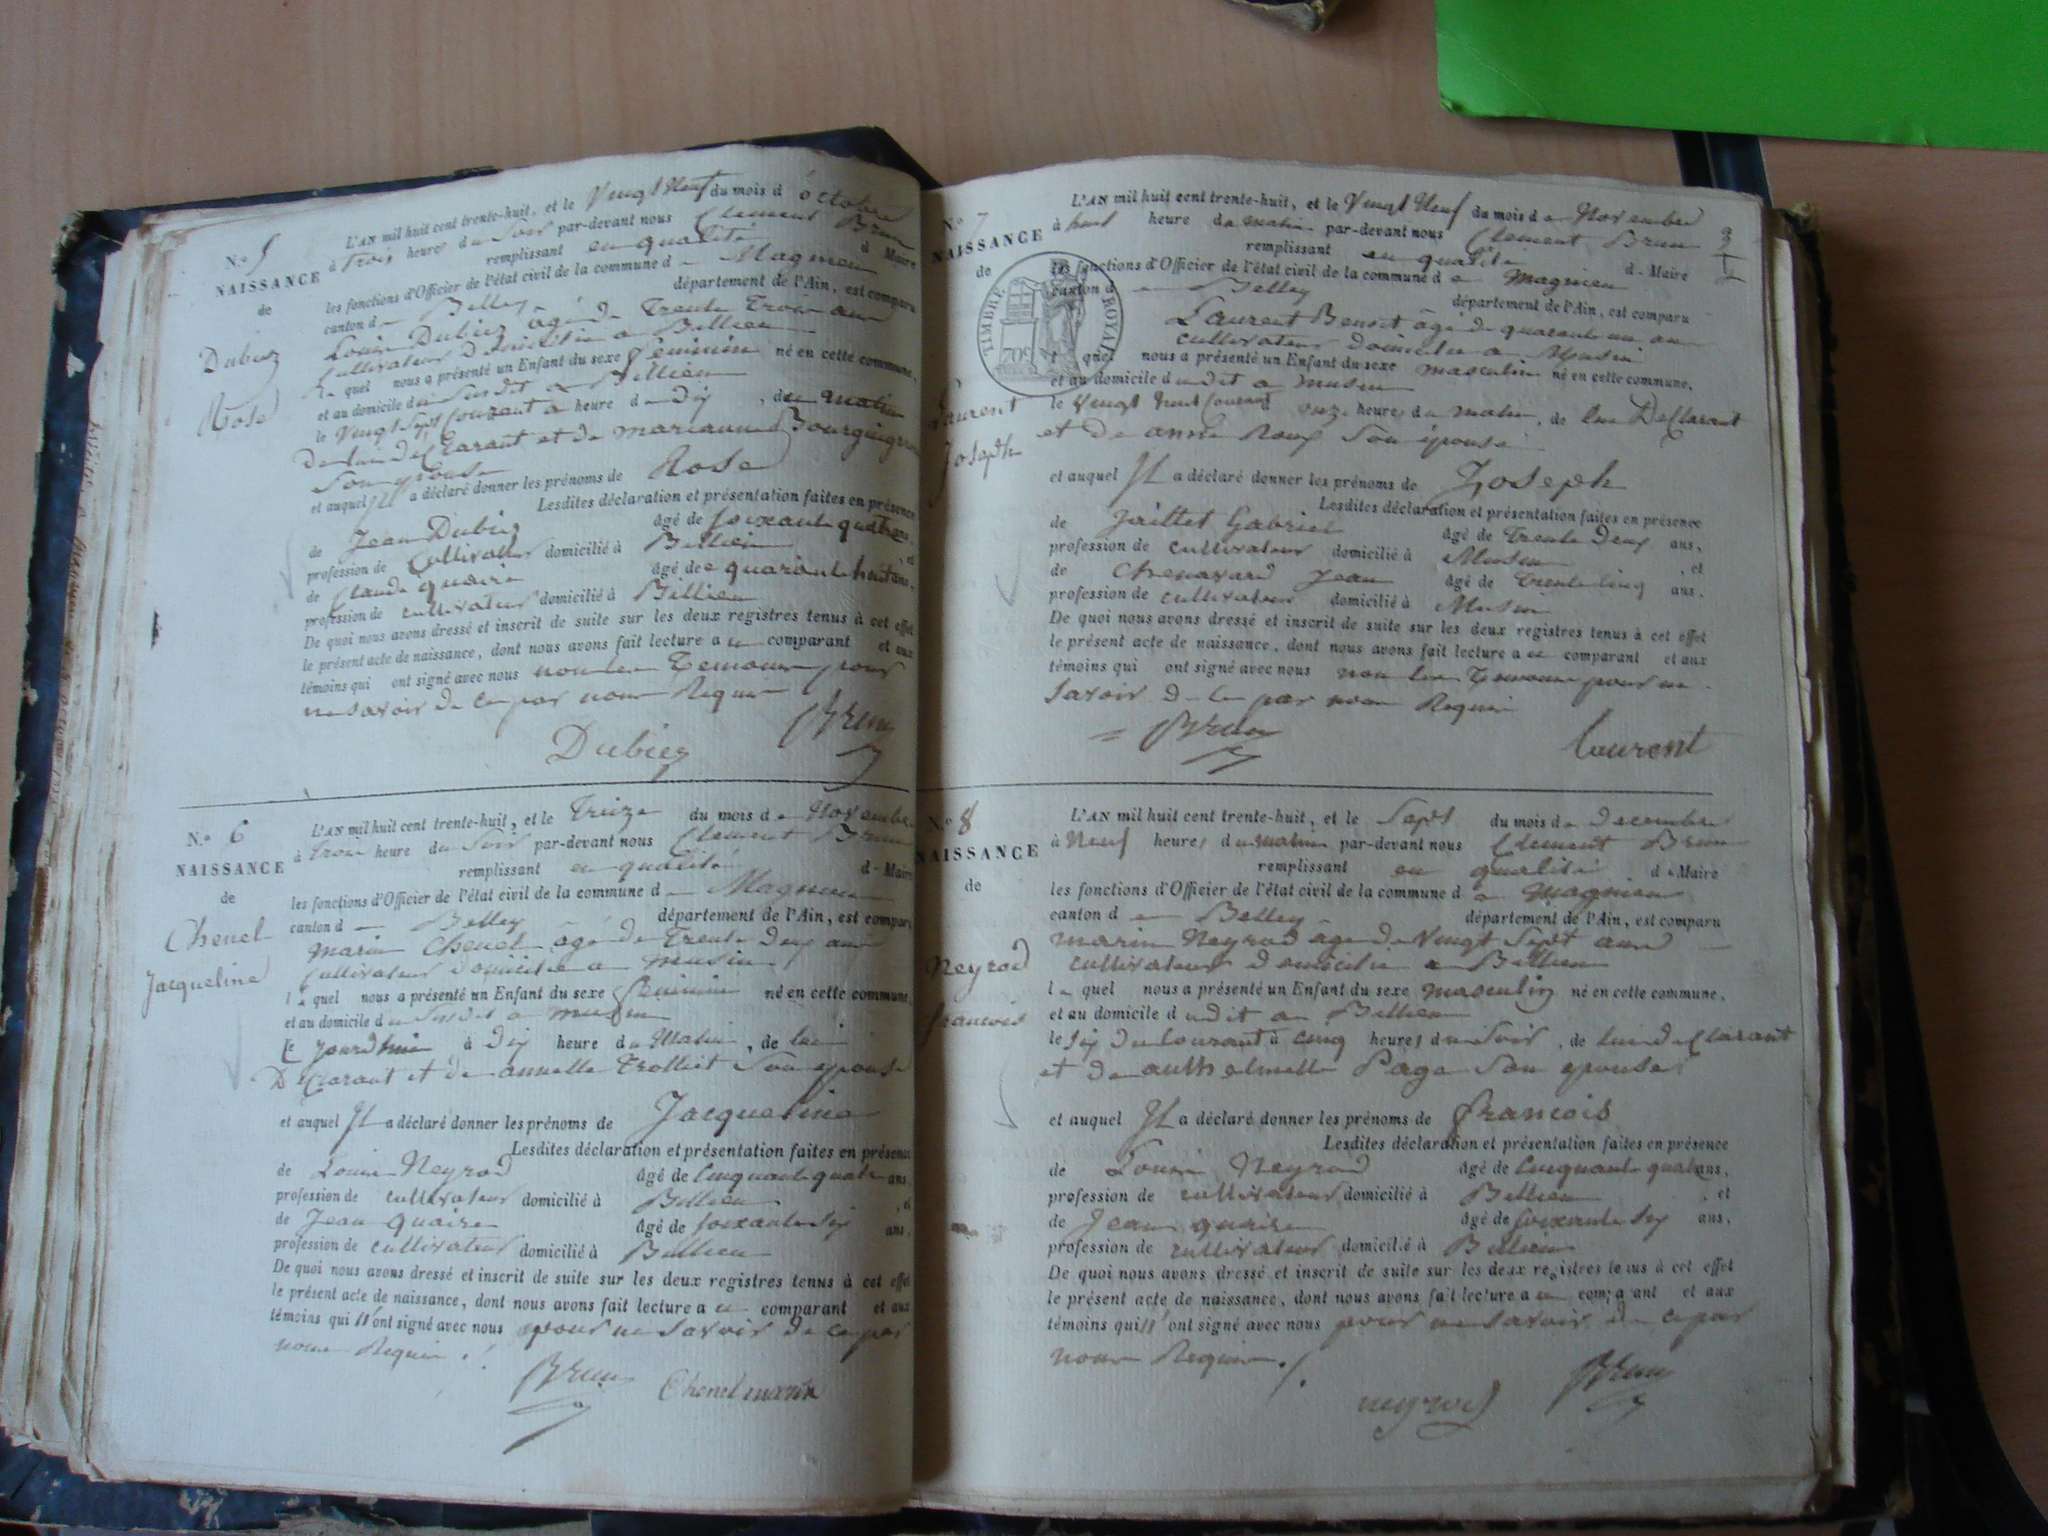 N.o 5
NAISSANCE
de
Dubiez
Rose
L'AN mil huit cent trente-huit, et le Vingt Neuf du mois d'octobre
à Trois heures du Soir par-devant nous Clement Brun
remplissant en qualité de Maire
les fonctions d'Officier de l'état civil de la commune de Magnieu
canton de Belley département de l'Ain, est comparu
Louis Dubiez âgé de Trente Trois ans
Cultivateur domicilié a Billieu
Le quel nous a présenté un Enfant du sexe féminin né en cette commune,
et au domicile du Susdit a Billieu
le Vingt Sept Courant a heure de dix, du matin
de lui Déclarant et de marianne Bourguignon
Son épouse
et auquel Il a déclaré donner les prénoms de Rose
Lesdites déclaration et présentation faites en présence
de Jean Dubiez âgé de soixante quatre ans,
profession de Cultivateur domicilié à Billieu, et
de Claude quaire âgé de quarante huit ans,
profession de cultivateur domicilié à Billieu
De quoi nous avons dressé et inscrit de suite sur les deux registres tenus à cet effet
le présent acte de naissance, dont nous avons fait lecture a ce comparant et aux
témoins qui ont signé avec nous non les Temoins pour
ne savoir de ce par nous Requis
Dubiez Brun
N.o 6
NAISSANCE
de
Chenel
Jacqueline
L'AN mil huit cent trente-huit, et le Treize du mois de Novembre
à Trois heure du Soir par-devant nous Clement Brun
remplissant en qualité de Maire
les fonctions d'Officier de l'état civil de la commune de Magnieu
canton de Belley département de l'Ain, est comparu
Marin Chenel âgé de Trente Deux ans
Cultivateur domicilié a musin
le quel nous a présenté un Enfant du sexe féminin né en cette commune,
et au domicile du Susdit a musin
Le jourdhui à Dix heure du Matin, de lui
Déclarant et de annette Trolliet Son epouse
et auquel Il a déclaré donner les prénoms de Jacqueline
Lesdites déclaration et présentation faites en présence
de Louis Neyrod âgé de Cinquante quatre ans,
profession de cultivateur domicilié à Billieu, et
de Jean quaire âgé de soixante Six ans,
profession de cultivateur domicilié à Billieu
De quoi nous avons dressé et inscrit de suite sur les deux registres tenus à cet effet
le présent acte de naissance, dont nous avons fait lecture a ce comparant et aux
témoins qui n'ont signé avec nous pour ne savoir de ce par
nous Requis.
Brun Chenel marin
N.o 7
NAISSANCE
de
Laurent
Joseph
TIMBRE ROYAL
70c
L'AN mil huit cent trente-huit, et le Vingt Neuf du mois de Novembre
à huit heure du matin par-devant nous Clement Brun
remplissant en qualité de Maire
les fonctions d'Officier de l'état civil de la commune de Magnieu
canton de Belley département de l'Ain, est comparu
Laurent Benoit âgé de quarante un an
cultivateur domicilié a Musin
l quel nous a présenté un Enfant du sexe masculin né en cette commune,
et au domicile du dit a musin
le Vingt huit Courant onze heures du matin, de lui Déclarant
et de anne Roux Son épouse
et auquel Il a déclaré donner les prénoms de Joseph
Lesdites déclaration et présentation faites en présence
de Jaillet Gabriel âgé de Trente Deux ans,
profession de cultivateur domicilié à Musin, et
de Chenavard Jean âgé de Trente Cinq ans,
profession de cultivateur domicilié à Musin
De quoi nous avons dressé et inscrit de suite sur les deux registres tenus à cet effet
le présent acte de naissance, dont nous avons fait lecture a ce comparant et aux
témoins qui ont signé avec nous non les Temoins pour ne
savoir de ce par nous Requis
Brun Laurent
N.o 8
NAISSANCE
de
Neyrod
francois
L'AN mil huit cent trente-huit, et le Sept du mois de decembre
à Neuf heures du matin par-devant nous Clement Brun
remplissant en qualité de Maire
les fonctions d'Officier de l'état civil de la commune de Magnieu
canton de Belley département de l'Ain, est comparu
marin Neyrod âgé de Vingt Sept ans
cultivateur domicilié a Billieu
le quel nous a présenté un Enfant du sexe masculin né en cette commune,
et au domicile du dit a Billieu
le Six du Courant à cinq heures du Soir, de lui déclarant
et de anthelmette Page Son epouse
et auquel Il a déclaré donner les prénoms de francois
Lesdites déclaration et présentation faites en présence
de Louis Neyrod âgé de Cinquante quatre ans,
profession de cultivateur domicilié à Billieu, et
de Jean quaire âgé de soixante Six ans,
profession de cultivateur domicilié à Billieu
De quoi nous avons dressé et inscrit de suite sur les deux registres tenus à cet effet
le présent acte de naissance, dont nous avons fait lecture a ce comparant et aux
témoins qui n'ont signé avec nous pour ne savoir de ce par
nous Requis.
neyrod Brun